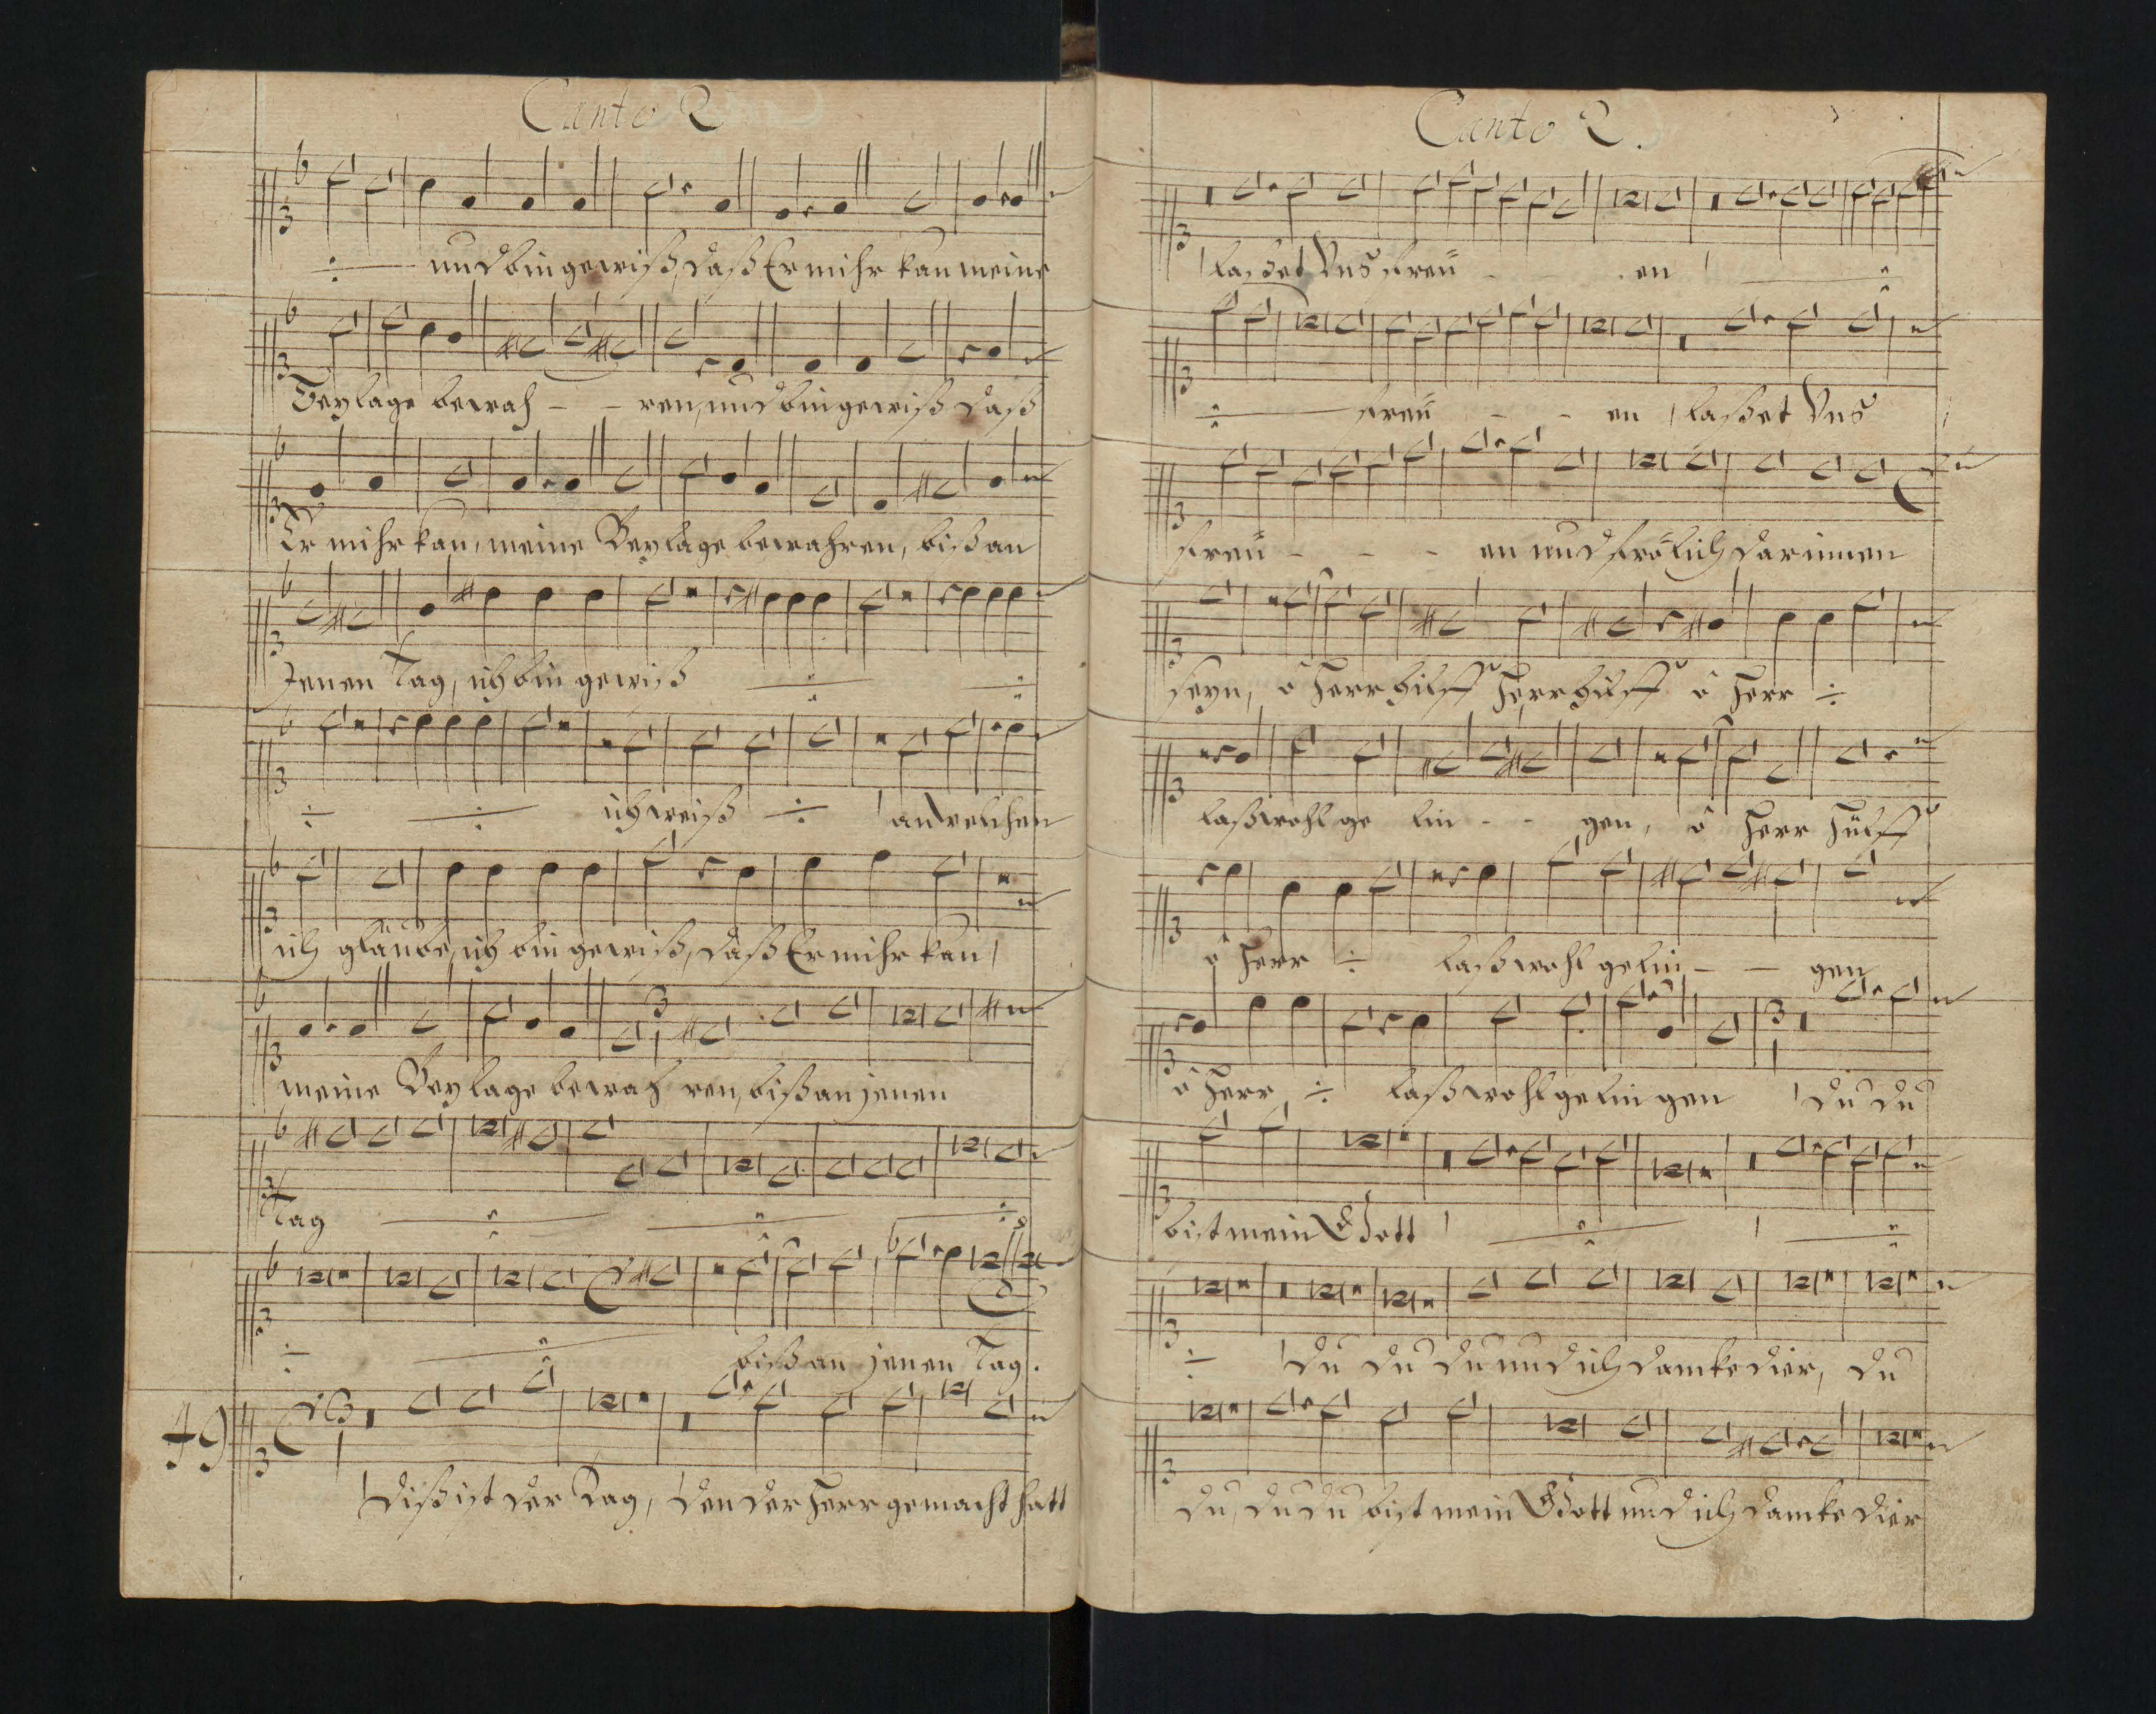 Canto 2
und bin gewiß, daß Er mihr kan meine
Beylage bewah - - ren, und bin gewiß daß
Er mihr kan, meine Beylage bewahren, biß an
Jenen Tag, ich bin gewiß
ich weiß an welchen
ich glaube, ich bin gewiß, daß Er mihr kan,
meine Beylage bewah ren, biß an jenen
Tag
biß an jenen Tag.
49
Diß ist der Tag, den der Herr gemacht hatt
Canto 2.
laßet Uns freü - - en
freü - - en laßet Uns
freü - - - en und frölich darinnen
seyn, o Herr hilff Herr hilff o Herr
laß wohl ge lin - - gen, o Herr hülff
o Herr laß wohl gelin - - gen
o Herr laß wohl gelingen du du
bist mein Gott
du du du und ich dancke dier, du
du, du du bist mein Gott und ich dancke dier